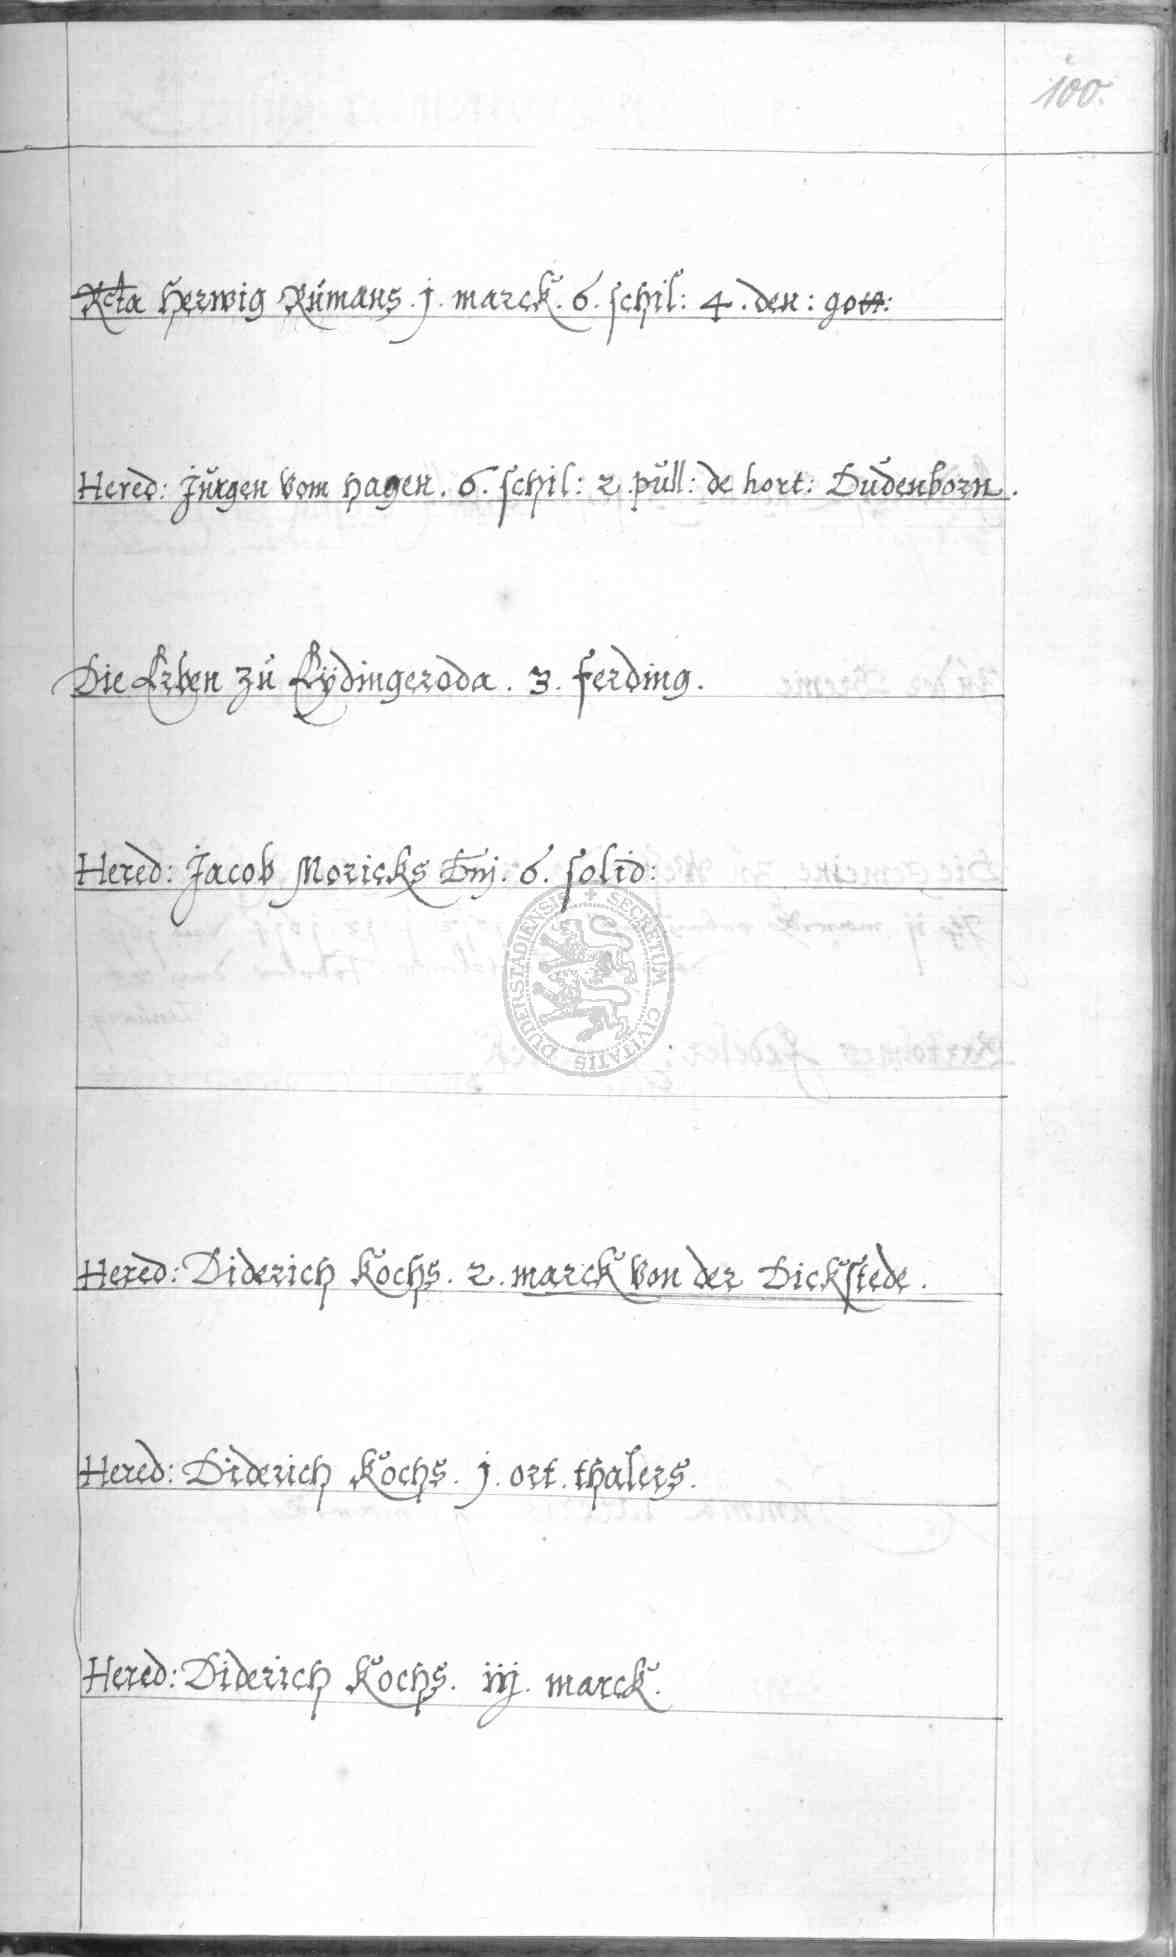 100.
Rcta Herwig Rümans . j . marck . 6 . schil : 4 . den : gott :
Hered : Jürgen vom Hagen . 6 . schil : 2 pull : de hort : Düdenborn .
Die Erben zü Eÿdingeroda . 3 . ferding .
Hered : Jacob Moricks . 6 . solid :
SECRETUM CIVITATIS DUDERSTADIENSIS
Hered : Diderich Kochs . 2 . marck von der Dickstede .
Hered : Diderich Kochs . j . ort . thalers .
Hered : Diderich Kochs . iij . marck .